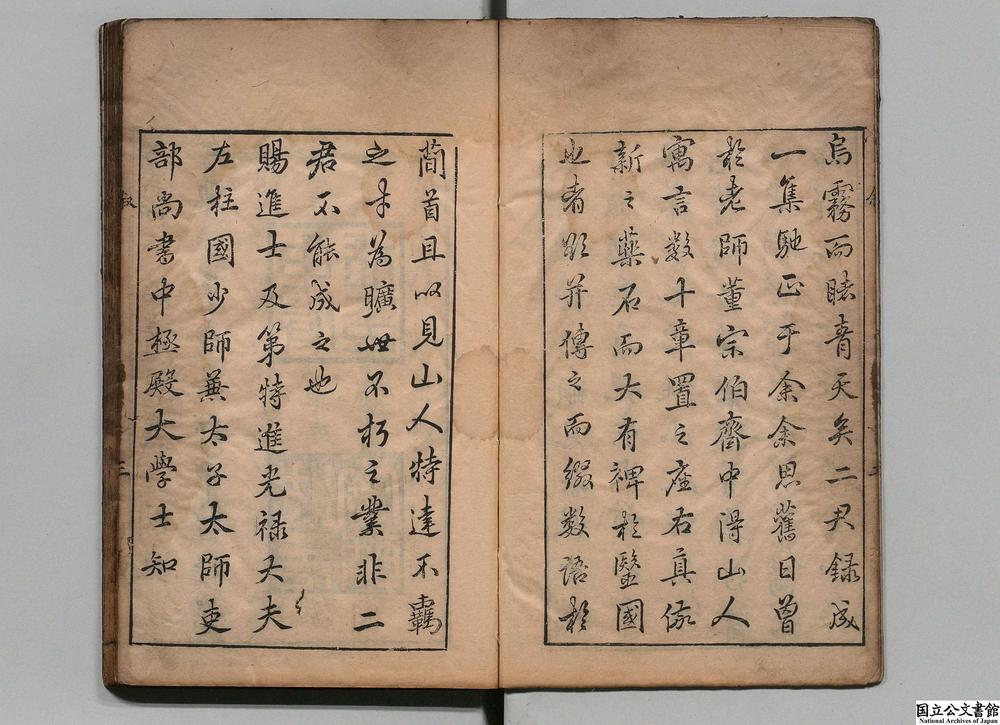 烏霧而睹青天矣二尹録成
一集馳正于余余思舊日曾
於老師董宗伯齋中得山人
寓言数十章置之座右真係
新之藥石而大有裨於醫國
也者欣并傳之而綴数語於
蕑首且以見山人特達不羈
之才為曠世不朽之業非二
君不能成之也
賜進士及第特進光禄大夫
左柱國少師兼太子太師吏
部尚書中極殿大學士知
叙
三
国立公文書館
National Archives of Japan